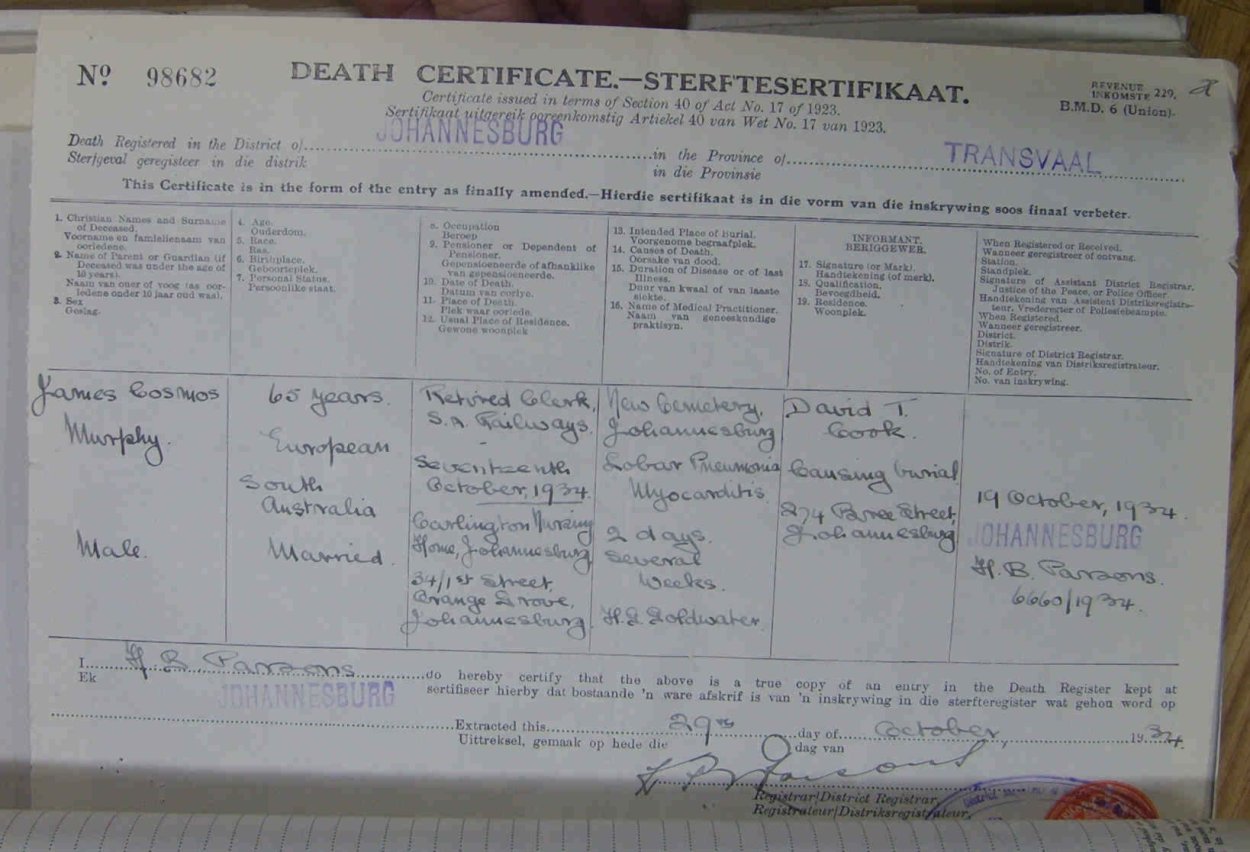 Nº 98682
DEATH CERTIFICATE.—STERFTESERTIFIKAAT.
REVENUE 229.
INKOMSTE
B.M.D. 6 (Union).
Certificate issued in terms of Section 40 of Act No. 17 of 1923.
Sertifikaat uitgereik ooreenkomstig Artiekel 40 van Wet No. 17 van 1923.
Death Registered in the District of JOHANNESBURG in the Province of TRANSVAAL
Sterfgeval geregisteer in die distrik in die Provinsie
This Certificate is in the form of the entry as finally amended.—Hierdie sertifikaat is in die vorm van die inskrywing soos finaal verbeter.
1. Christian Names and Surname
of Deceased.
Voorname en familienaam van
oorledene.
2. Name of Parent or Guardian (if
Deceased was under the age of
10 years).
Naam van ouer of voog (as oor-
ledene onder 10 jaar oud was).
3. Sex
Geslag.
4. Age.
Ouderdom.
5. Race.
Ras.
6. Birthplace.
Geboorteplek.
7. Personal Status.
Persoonlike staat.
8. Occupation
Beroep
9. Pensioner or Dependent of
Pensioner.
Gepensioeneerde of afhanklike
van gepensioeneerde.
10. Date of Death.
Datum van
11. Place of Death.
Plek waar oorlede.
12. Usual Place of Residence.
Gewone woonplek
13. Intended Place of Burial.
Voorgenome begraafplek.
14. Causes of Death.
Oorsake van dood.
15. Duration of Disease or of last
Illness.
Duur van kwaal of van laaste
siekte.
16. Name of Medical Practitioner.
Naam van geneeskundige
praktisyn.
INFORMANT.
BERIGGEWER.
17. Signature (or Mark).
Handtekening (of merk).
18. Qualification.
Bevoegdheid.
19. Residence.
Woonplek.
When Registered or Received.
Wanneer geregistreer of ontvang.
Station.
Standplek.
Signature of Assistant District Registrar,
Justice of the Peace, or Police Officer.
Handtekening van Assistent Distriksregistra-
teur, Vrederegter of Poliesiebeampte.
When Registered.
Wanneer geregistreer.
District.
Distrik.
Signature of District Registrar.
Handtekening van Distriksregistrateur.
No. of Entry.
No. van inskrywing.
James Cosmos
Murphy.
Male.
65 years.
European
South
Australia
Married.
Retired Clerk,
S.A. Railways.
Seventeenth
October, 1934.
Carlington Nursing
Home, Johannesburg
34/1st Street,
Orange Grove,
Johannesburg.
New Cemetery,
Johannesburg
Lobar Pneumonia
Myocarditis
2 days.
Several
Weeks.
Goldwater.
David T.
Cook.
Causing burial
274 Bree Street,
Johannesburg
19 October, 1934.
JOHANNESBURG
H. B. Parsons.
6660/1934.
I H B Parsons do hereby certify that the above is a true copy of an entry in the Death Register kept at
Ek sertifiseer hierby dat bostaande 'n ware afskrif is van 'n inskrywing in die sterfteregister wat gehou word op
JOHANNESBURG
Extracted this 29th day of October, 1934.
Uittreksel, gemaak op hede die dag van
H B Parsons
Registrar/District Registrar.
Registrateur/Distriksregistrateur.